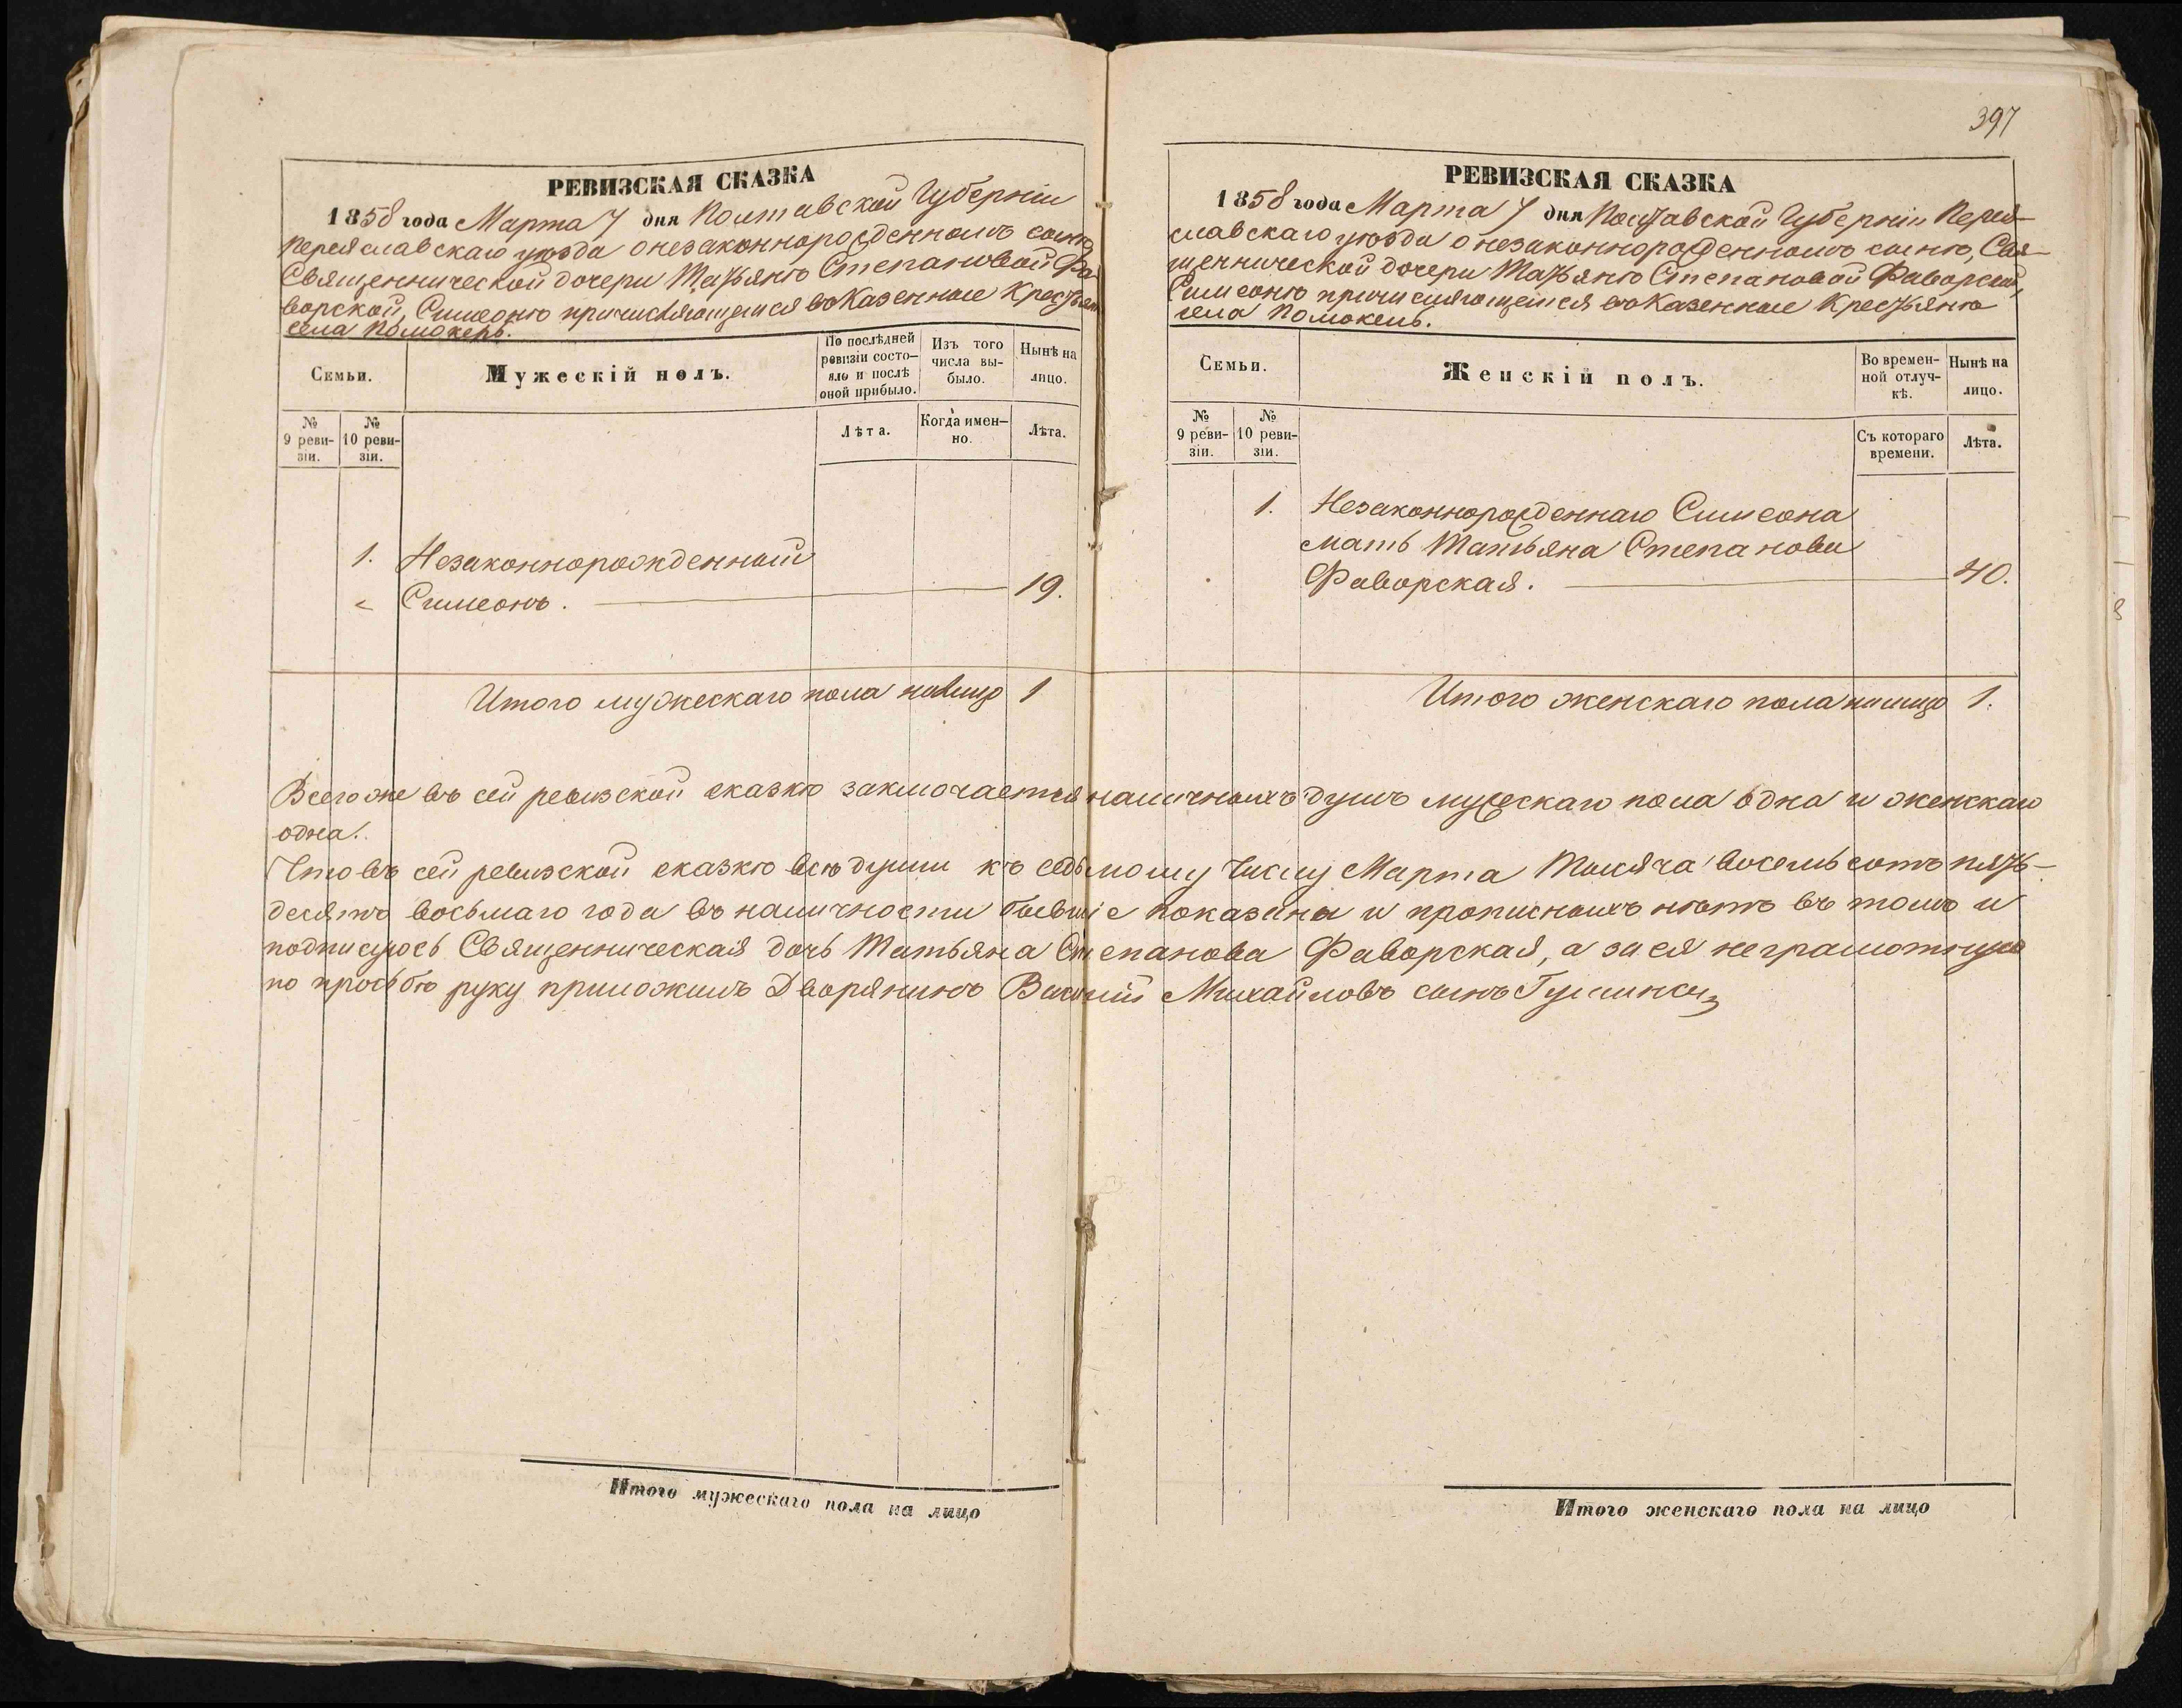 397
РЕВИЗСКАЯ СКАЗКА
1858 года Марта 7 дня Полтавской Губерніи
Переяславскаго уѣзда о незаконнорожденномъ сынѣ
Священнической дочери Татьянѣ Степановой Фа-
ворской, Симеонѣ причисляющемся въ Казенные Крестьяне
села Помокель.
Семьи.
Мужескій полъ.
По послѣдней
ревизіи состо-
яло и послѣ
оной прибыло.
Изъ того
числа вы-
было.
Нынѣ на
лицо.
№
9 реви-
зіи.
№
10 реви-
зіи.
Лѣта.
Когда имен-
но.
Лѣта.
1. Незаконнорожденный
Симеонъ. 19.
Итого мужескаго пола налицо 1
РЕВИЗСКАЯ СКАЗКА
1858 года Марта 7 дня Полтавской Губерніи Перея-
славскаго уѣзда о незаконнорожденномъ сынѣ, Свя-
щеннической дочери Татьянѣ Степановой Фаворской,
Симеонѣ причисляющемся въ Казенные Крестьяне
села Помокель.
Семьи.
Женскій полъ.
Во времен-
ной отлуч-
кѣ.
Нынѣ на
лицо.
№
9 реви-
зіи.
№
10 реви-
зіи.
Съ котораго
времени.
Лѣта.
1. Незаконнорожденнаго Симеона
мать Татьяна Степанова
Фаворская. 40.
Итого женскаго пола налицо 1.
Всего же въ сей ревизской сказкѣ заключается наличныхъ душъ мужескаго пола одна и женскаго
одна.
Что въ сей ревизской сказкѣ всѣ души къ седьмому числу Марта Тысяча восемьсотъ пять-
десятъ восьмаго года въ наличности бывшіе показаны и прописныхъ нѣтъ въ томъ и
подписуюсь Священническая дочь Татьяна Степанова Фаворская, а за ея неграмотную
по прозьбѣ руку приложилъ Дворянинъ Василій Михайловъ сынъ
Итого мужескаго пола на лицо
Итого женскаго пола на лицо